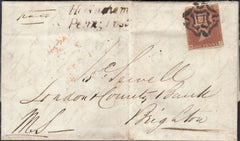 Horsham
Penny Post
Mr Sewell
London & County Bank
Brighton